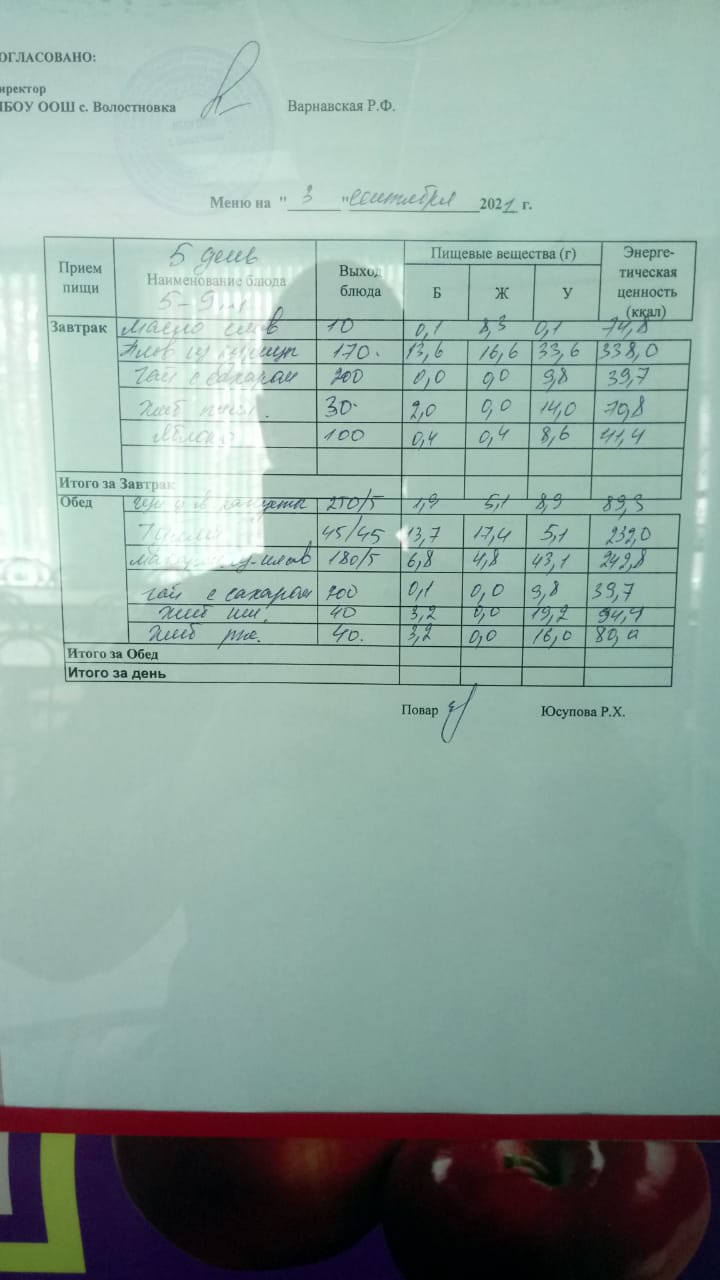 ОГЛАСОВАНО:
иректор
БОУ ООШ с. Волостновка Варнавская Р.Ф.
Меню на " 3 " сентября 2021 г.
Прием пищи 5 день Наименование блюда 5-9 Выход блюда Пищевые вещества (г) Б Ж У Энерге-тическая ценность (ккал)
Завтрак масло слив 10 0,1 8,3 0,1 74,8
Плов из 170. 13,6 16,6 33,6 338,0
Чай с сахаром 200 0,0 0,0 9,8 39,7
Хлеб 30 2,0 0,0 14,0 70,8
Яблоко 100 0,4 0,4 8,6 41,4
Итого за Завтрак
Обед капусты 250/5 1,9 5,1 8,9 89,3
45/45 13,7 17,4 5,1 232,0
180/5 6,8 4,8 43,1 242,8
Чай с сахаром 200 0,1 0,0 9,8 39,7
Хлеб пш. 40 3,2 0,0 19,2 94,4
Хлеб рж. 40. 3,2 0,0 16,0 80,0
Итого за Обед
Итого за день
Повар Юсупова Р.Х.